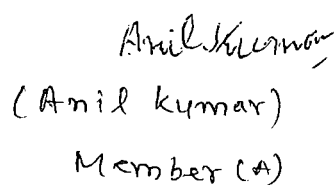 Anil Kumar
(Anil Kumar)
Member (A)